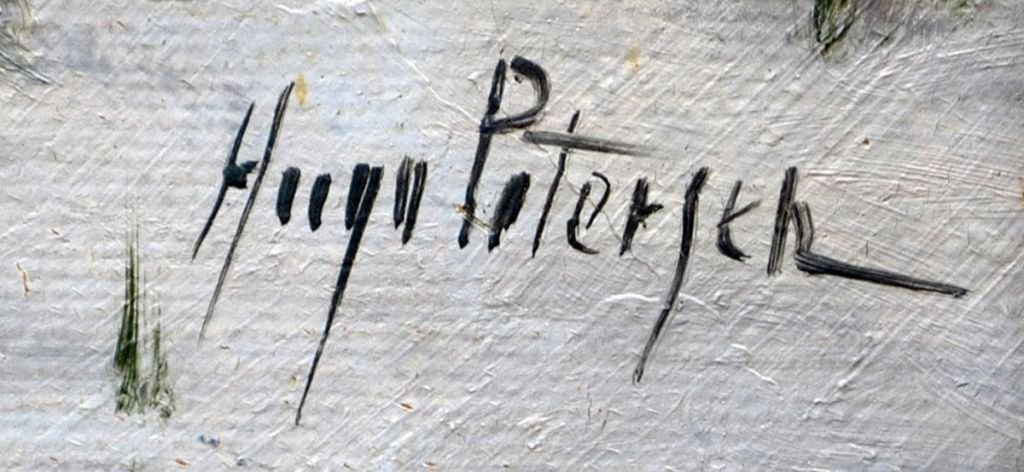 Hugo Petersen